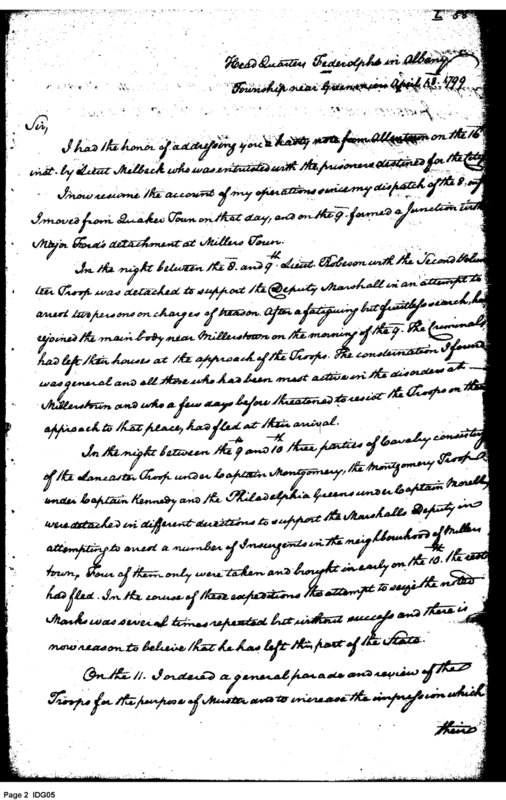 Head Quarters Federolphs in Albany
Township near Greensius April 13. 1799
Sir,
I had the honor of addressing you a hasty note from Allentown on the 16
inst. by Lieut Melbeck who was entrusted with the prisoners destined for the City
I now resume the account of my operations since my dispatch of the 8. inst
I moved from Quaker Town on that day, and on the 9. formed a Junction with
Major Ford's detachment at Millers Town.
In the night between the 8. and 9th. Lieut. Robeson with the Second Volun
teer Troop was detached to support the Deputy Marshall in an attempt to
arrest two persons on charges of treason. After a fatiguing but fruitless search, he
rejoined the main body near Millerstown on the morning of the 9. The Criminals
had left their houses at the approach of the Troops. The consternation I found
was general and all those who had been most active in the disorders at
Millerstown and who a few days before threatened to resist the Troops on their
approach to that place, had fled at their arrival.
In the night between the 9th and 10th three parties of Cavalry consisting
of the Lancaster Troop under Captain Montgomery, the Montgomery Troop
under Captain Kennedy and the Philadelphia Greens under Captain Morell,
were detached in different directions to support the Marshalls Deputy in
attempting to arrest a number of Insurgents in the neighbourhood of Millers
town, Four of them only were taken and brought in early on the 10th. the rest
had fled. In the course of these expeditions the attempt to seize the noted
Marks was several times repeated but without success and there is
now reason to beleive that he has left this part of the State.
On the 11. I ordered a general parade and review of the
Troops for the purpose of Muster and to increase the impression which
their
Page 2 IDG05